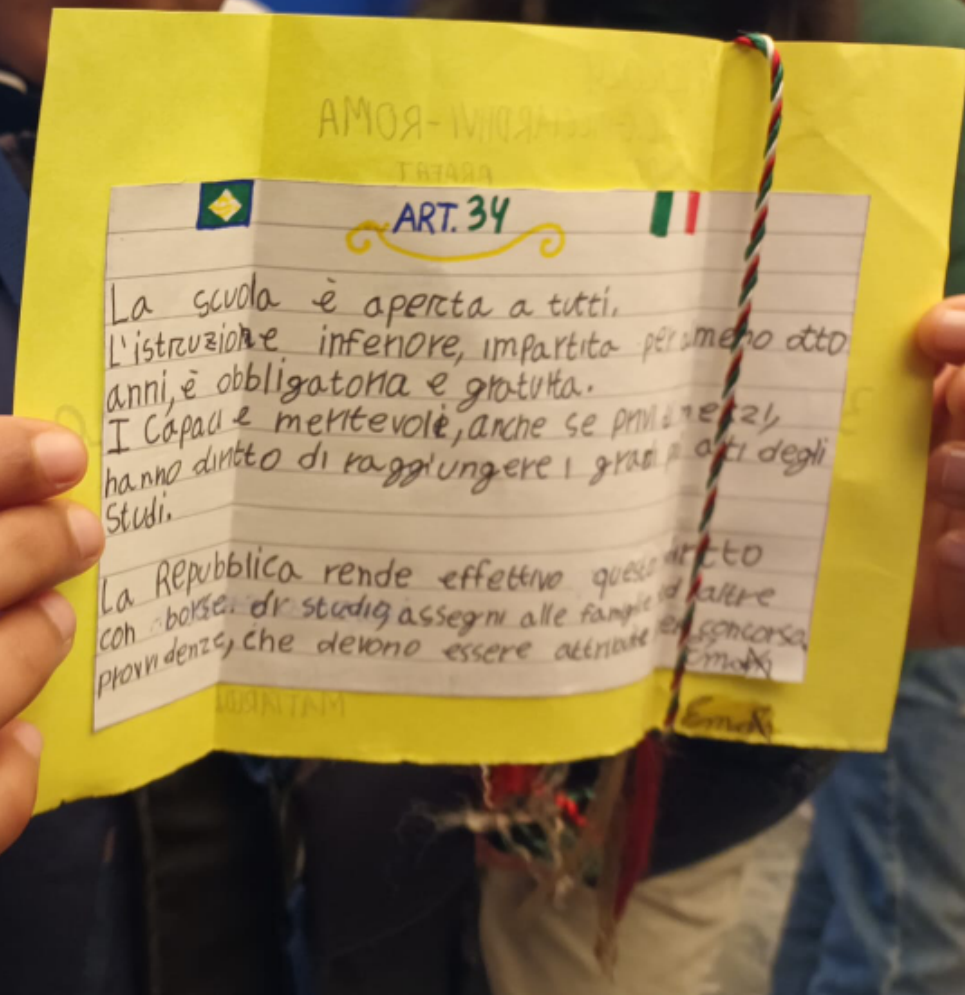 ART. 34
La scuola è aperta a tutti.
L'istruzione inferiore, impartita per ameno otto
anni, è obbligatoria e gratuita.
I capaci e meritevoli, anche se privi mezzi,
hanno diritto di raggiungere i gradi più alti degli
studi.
La Repubblica rende effettivo questo diritto
con borse di studio, assegni alle famiglie ed altre
provvidenze, che devono essere attribuite per concorso.